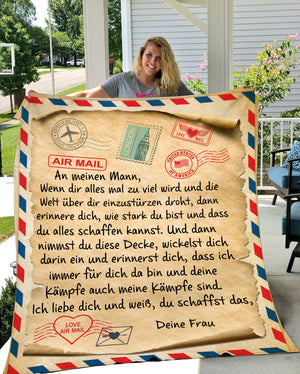 AIR MAIL
LOVE
UNITED STATES
OF AMERICA
An meinen Mann,
Wenn dir alles mal zu viel wird und die
Welt über dir einzustürzen droht, dann
erinnere dich, wie stark du bist und dass
du alles schaffen kannst. Und dann
nimmst du diese Decke, wickelst dich
darin ein und erinnerst dich, dass ich
immer für dich da bin und deine
Kämpfe auch meine Kämpfe sind.
Ich liebe dich und weiß, du schaffst das,
Deine Frau
LOVE
AIR MAIL